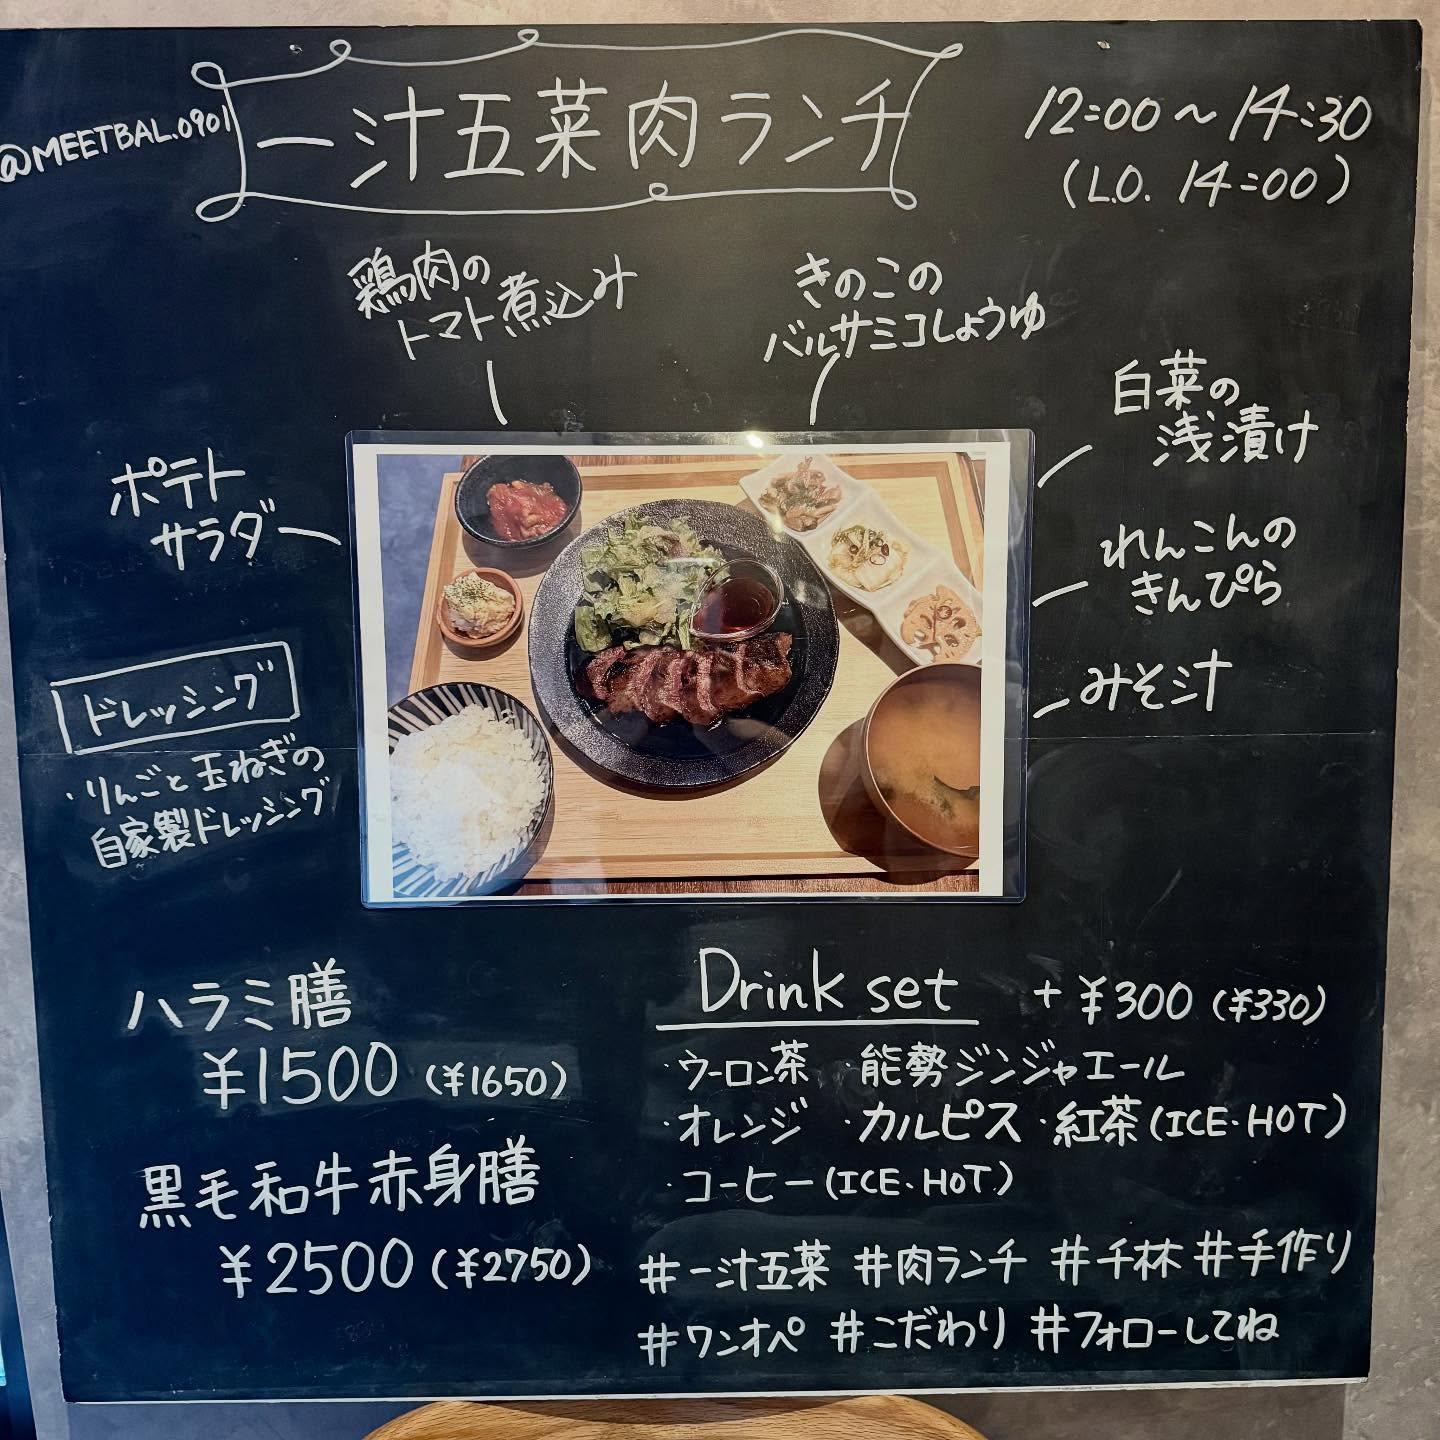 @MEETBAL.0901
一汁五菜肉ランチ
12:00～14:30
(L.O. 14:00)
鶏肉の
トマト煮込み
きのこの
バルサミコしょうゆ
白菜の
浅漬け
ポテト
サラダー
れんこんの
きんぴら
みそ汁
ドレッシング
・りんごと玉ねぎの
自家製ドレッシング
ハラミ膳
¥1500 (¥1650)
黒毛和牛赤身膳
¥2500 (¥2750)
Drink set +¥300 (¥330)
・ウーロン茶 ・能勢ジンジャエール
・オレンジ ・カルピス ・紅茶(ICE・HOT)
・コーヒー(ICE・HOT)
#一汁五菜 #肉ランチ #千林 #手作り
#ワンオペ #こだわり #フォローしてね